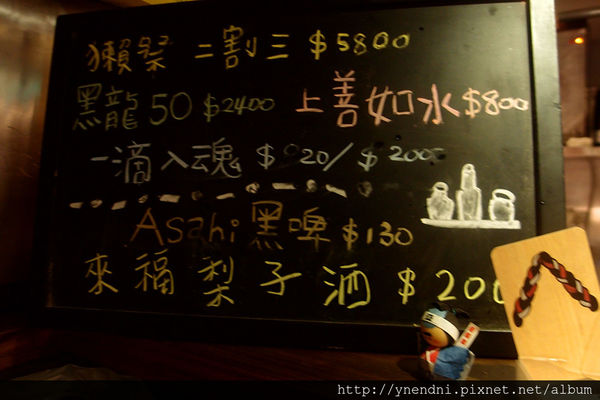 獺祭 二割三 $5800
黑龍 50 $2400 上善如水 $800
一滴入魂 $ 20/$ 200
Asahi 黑啤 $130
來福梨子酒 $200
http://ynendni.pixnet.net/album